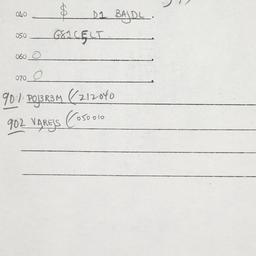 040 $ D1 BAJDL.
050 G81CELT
060 0
070 0
901 POJ3R3M (/212040
902 VAREJS (/050010